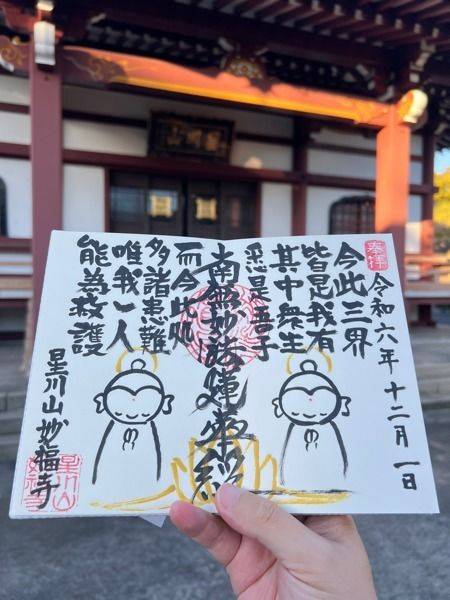 奉拝
令和六年十二月一日
今此三界
皆是我有
其中衆生
悉是吾子
南無妙法蓮華経
而今此処
多諸患難
唯我一人
能為救護
星川山妙福寺